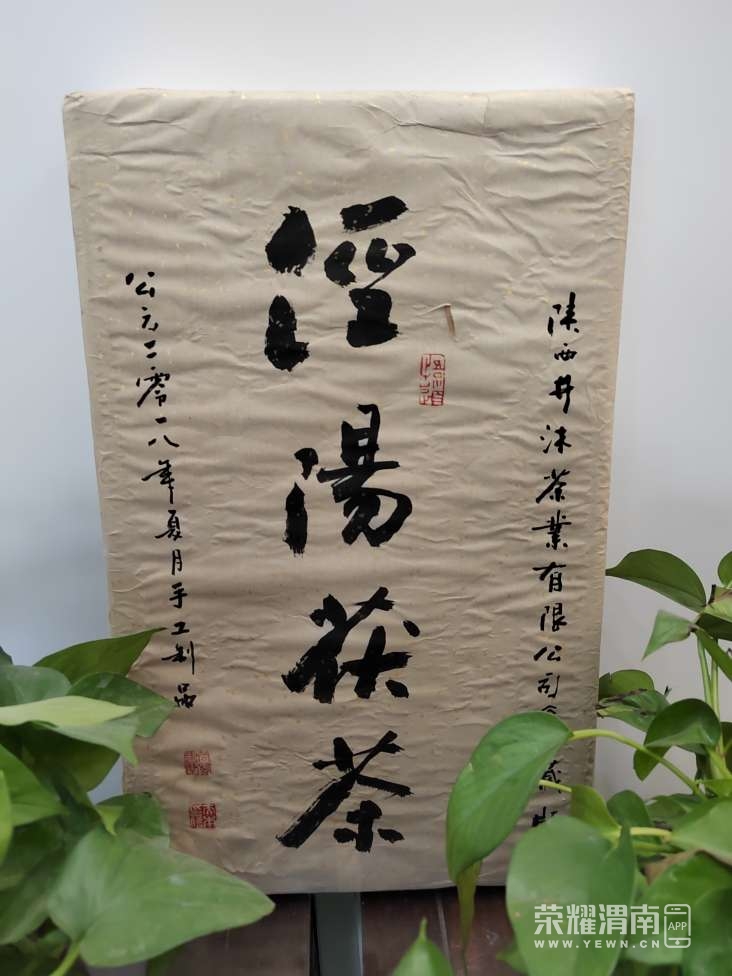 陕西井沬茶业有限公司
涇陽茯茶
公元二零一八年夏月手工制品
荣耀渭南 APP
WWW.YEWN.CN